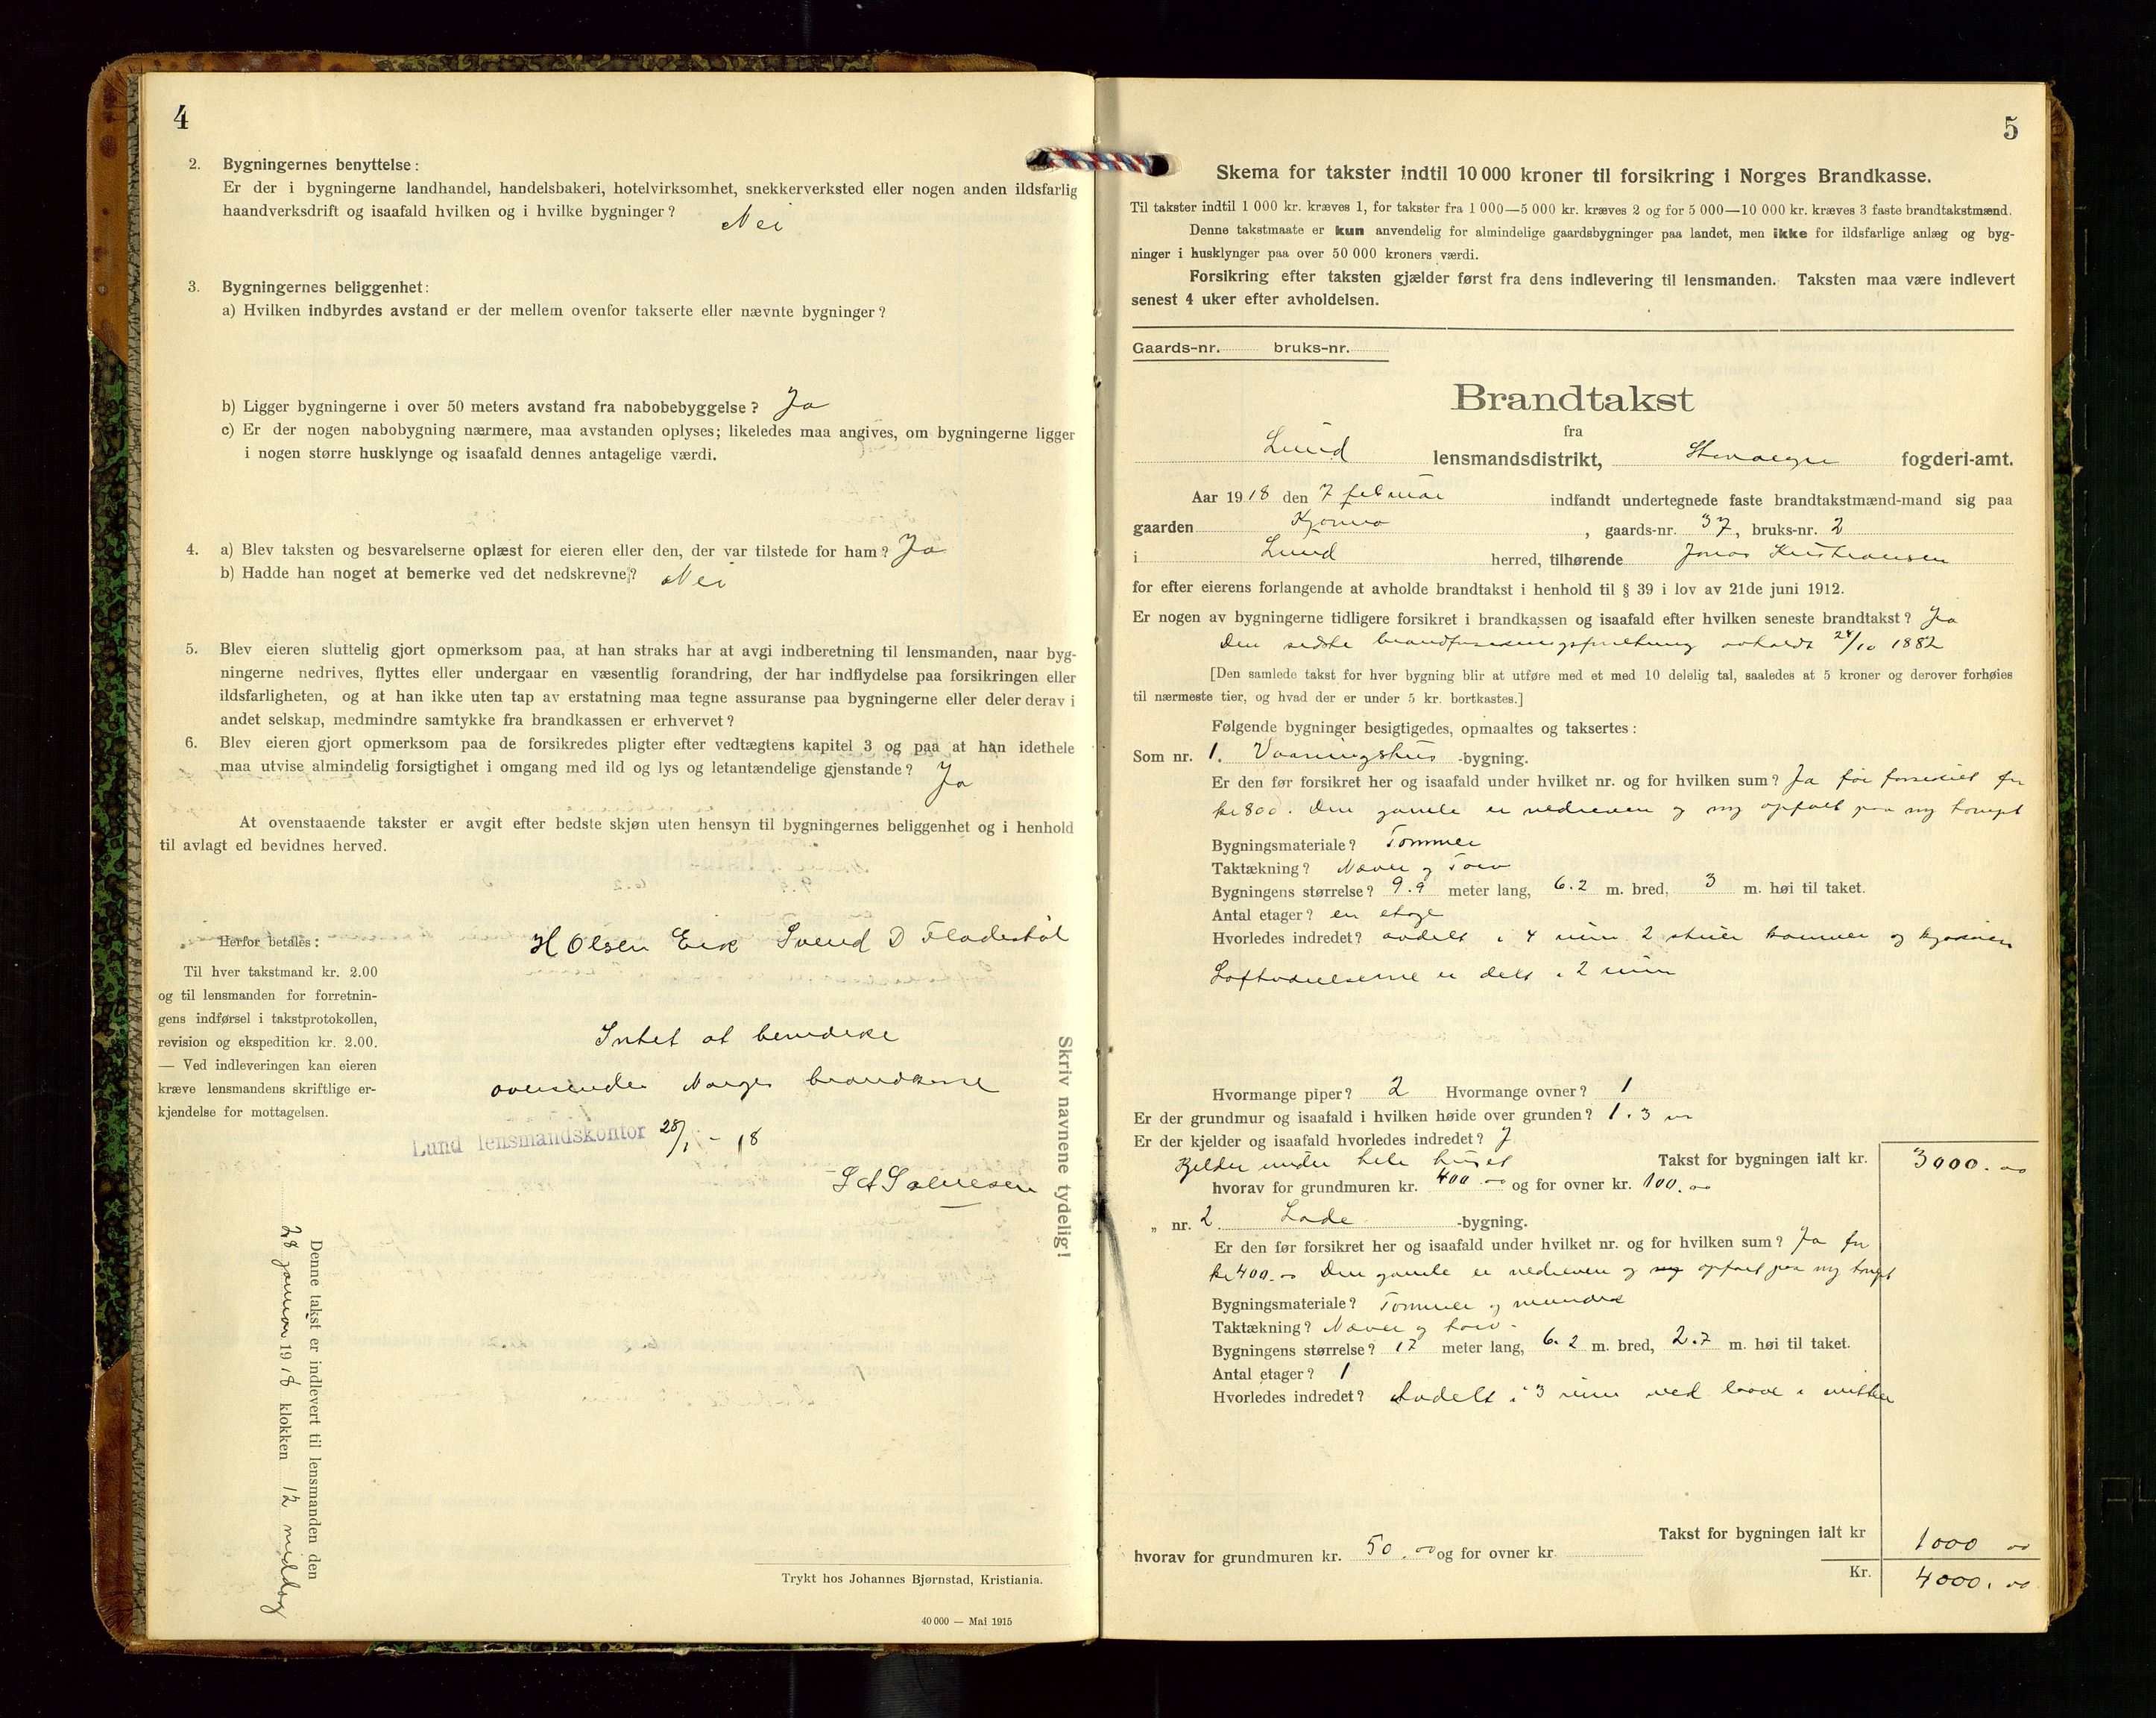 4
2. Bygningernes benyttelse:
Er der i bygningerne landhandel, handelsbakeri, hotelvirksomhet, snekkerverksted eller nogen anden ildsfarlig
haandverksdrift og isaafald hvilken og i hvilke bygninger? Nei
3. Bygningernes beliggenhet:
a) Hvilken indbyrdes avstand er der mellem ovenfor takserte eller nævnte bygninger?
b) Ligger bygningerne i over 50 meters avstand fra nabobebyggelse? Ja
c) Er der nogen nabobygning nærmere, maa avstanden oplyses; likeledes maa angives, om bygningerne ligger
i nogen større husklynge og isaafald dennes antagelige værdi.
4. a) Blev taksten og besvarelserne oplæst for eieren eller den, der var tilstede for ham? Ja
b) Hadde han noget at bemerke ved det nedskrevne? Nei
5. Blev eieren sluttelig gjort opmerksom paa, at han straks har at avgi indberetning til lensmanden, naar byg-
ningerne nedrives, flyttes eller undergaar en væsentlig forandring, der har indflydelse paa forsikringen eller
ildsfarligheten, og at han ikke uten tap av erstatning maa tegne assuranse paa bygningerne eller deler derav i
andet selskap, medmindre samtykke fra brandkassen er erhvervet?
6. Blev eieren gjort opmerksom paa de forsikredes pligter efter vedtægtens kapitel 3 og paa at han idethele
maa utvise almindelig forsigtighet i omgang med ild og lys og letantændelige gjenstande? Ja
At ovenstaaende takster er avgit efter bedste skjøn uten hensyn til bygningernes beliggenhet og i henhold
til avlagt ed bevidnes herved.
H Olsen Eik Svend D Fladestøl
Herfor betales:
Til hver takstmand kr. 2.00
og til lensmanden for forretnin-
gens indførsel i takstprotokollen,
revision og ekspedition kr. 2.00.
— Ved indleveringen kan eieren
kræve lensmandens skriftlige er-
kjendelse for mottagelsen.
Intet at bemerke
oversendes Norges brandkasse
Lund lensmandskontor 28/1 - 18
Skriv navnene tydelig!
Denne takst er indlevert til lensmanden den
28 januar 1918 klokken 12 middag
Trykt hos Johannes Bjørnstad, Kristiania.
40 000 — Mai 1915
5
Skema for takster indtil 10 000 kroner til forsikring i Norges Brandkasse.
Til takster indtil 1 000 kr. kræves 1, for takster fra 1 000—5 000 kr. kræves 2 og for 5 000—10 000 kr. kræves 3 faste brandtakstmænd.
Denne takstmaate er kun anvendelig for almindelige gaardsbygninger paa landet, men ikke for ildsfarlige anlæg og byg-
ninger i husklynger paa over 50 000 kroners værdi.
Forsikring efter taksten gjælder først fra dens indlevering til lensmanden. Taksten maa være indlevert
senest 4 uker efter avholdelsen.
Gaards-nr. bruks-nr.
Brandtakst
fra
Lund lensmandsdistrikt, Stavanger fogderi-amt.
Aar 1918 den 7 februar indfandt undertegnede faste brandtakstmænd-mand sig paa
gaarden , gaards-nr. 37, bruks-nr. 2
i Lund herred, tilhørende Jonas Kristiansen
for efter eierens forlangende at avholde brandtakst i henhold til § 39 i lov av 21de juni 1912.
Er nogen av bygningerne tidligere forsikret i brandkassen og isaafald efter hvilken seneste brandtakst? Ja
Den sidste avholdt 24/10 1882
[Den samlede takst for hver bygning blir at utføre med et med 10 delelig tal, saaledes at 5 kroner og derover forhøies
til nærmeste tier, og hvad der er under 5 kr. bortkastes.]
Følgende bygninger besigtigedes, opmaaltes og taksertes:
Som nr. 1. Vaaningshus -bygning.
Er den før forsikret her og isaafald under hvilket nr. og for hvilken sum? Ja før forsikret for
kr 800. Den gamle er nedreven og ny opført paa ny tompt
Bygningsmateriale? Tømmer
Taktækning? Næver og Torv
Bygningens størrelse? 9.9 meter lang, 6.2 m. bred, 3 m. høi til taket.
Antal etager? en etage
Hvorledes indredet? avdelt i 4 rum 2 stuer kammer og kjøkken
Loftværelserne er delt i 2 rum
Hvormange piper? 2 Hvormange ovner? 1
Er der grundmur og isaafald i hvilken høide over grunden? 1.3 m
Er der kjelder og isaafald hvorledes indredet? J
Kjelder under hele huset Takst for bygningen ialt kr. 3000.00
hvorav for grundmuren kr. 400.00 og for ovner kr. 100.00
„ nr. 2 Lade -bygning.
Er den før forsikret her og isaafald under hvilket nr. og for hvilken sum? Ja for
kr 400.00 Den gamle er nedreven og ny opført paa ny tompt
Bygningsmateriale? Tømmer og
Taktækning? Næver og torv
Bygningens størrelse? 17 meter lang, 6.2 m. bred, 2.7 m. høi til taket.
Antal etager? 1
Hvorledes indredet? Avdelt i 3 rum med laave i midten
Takst for bygningen ialt kr 1000 00
hvorav for grundmuren kr. 50.00 og for ovner kr
Kr. 4000.00